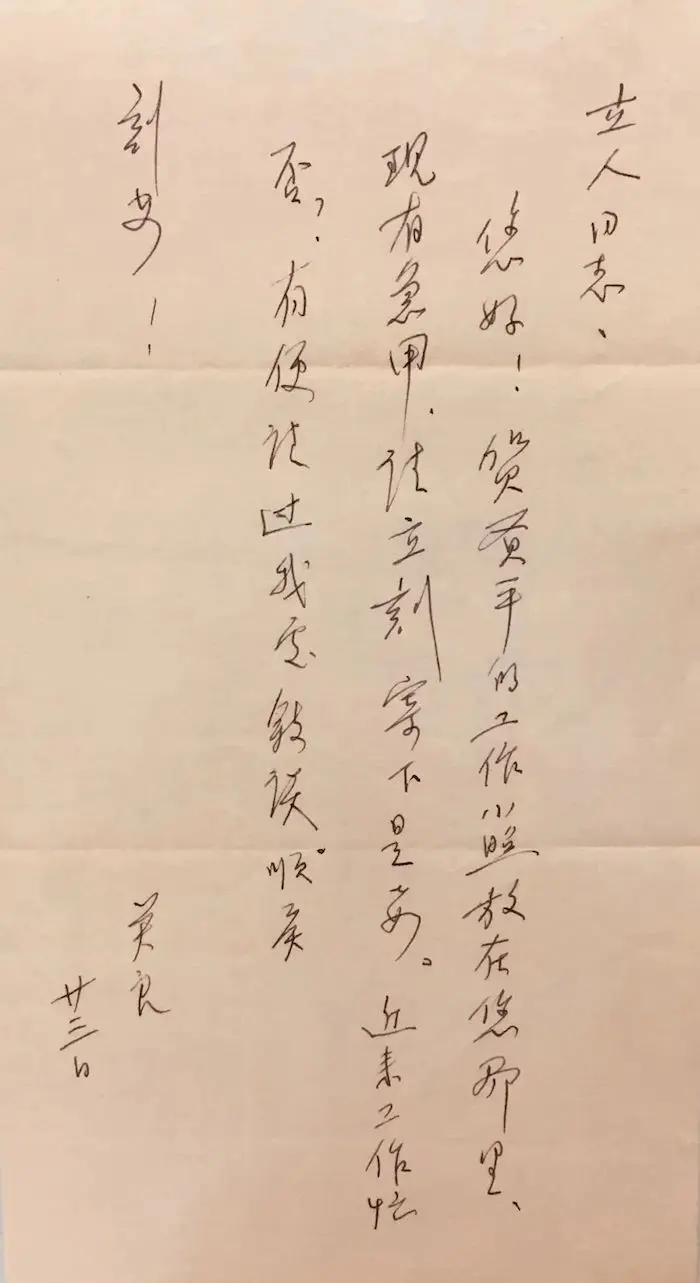 立人同志、
您好！贺平的工作小照放在您那里、
现有急用、请立刻寄下是。近来工作忙
否？有便请过我处叙谈。顺
刻安！
英良
廿三日